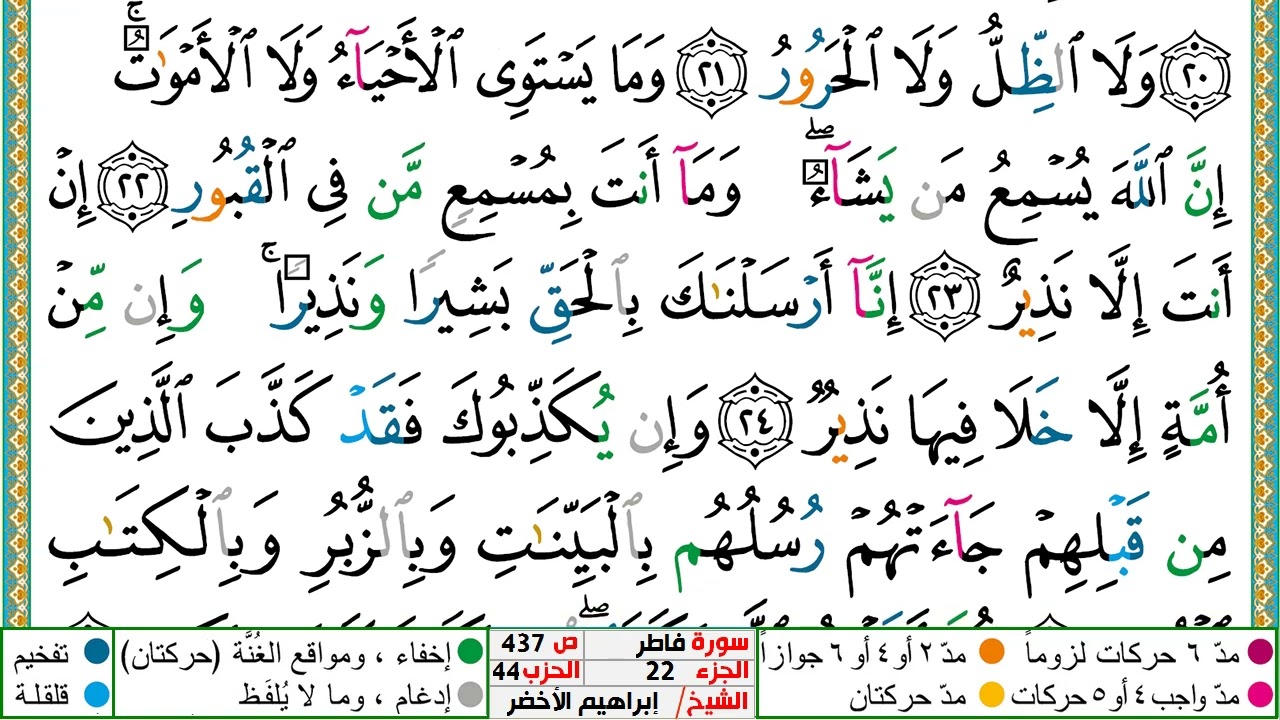 ٢٠ وَلَا ٱلظِّلُّ وَلَا ٱلْحَرُورُ ٢١ وَمَا يَسْتَوِى ٱلْأَحْيَآءُ وَلَا ٱلْأَمْوَٰتُ ۚ
إِنَّ ٱللَّهَ يُسْمِعُ مَن يَشَآءُ ۖ وَمَآ أَنتَ بِمُسْمِعٍ مَّن فِى ٱلْقُبُورِ ٢٢ إِنْ
أَنتَ إِلَّا نَذِيرٌ ٢٣ إِنَّآ أَرْسَلْنَٰكَ بِٱلْحَقِّ بَشِيرًا وَنَذِيرًا ۚ وَإِن مِّنْ
أُمَّةٍ إِلَّا خَلَا فِيهَا نَذِيرٌ ٢٤ وَإِن يُكَذِّبُوكَ فَقَدْ كَذَّبَ ٱلَّذِينَ
مِن قَبْلِهِمْ جَآءَتْهُمْ رُسُلُهُم بِٱلْبَيِّنَٰتِ وَبِٱلزُّبُرِ وَبِٱلْكِتَٰبِ
مدّ ٦ حركات لزوماً
مدّ ٢ أو ٤ أو ٦ جوازاً
مدّ واجب ٤ أو ٥ حركات
مدّ حركتان
سورة فاطر ص 437
الجزء 22 الحزب 44
الشيخ/ إبراهيم الأخضر
إخفاء ، ومواقع الغُنَّة (حركتان)
تفخيم
إدغام ، وما لا يُلفَظ
قلقلة